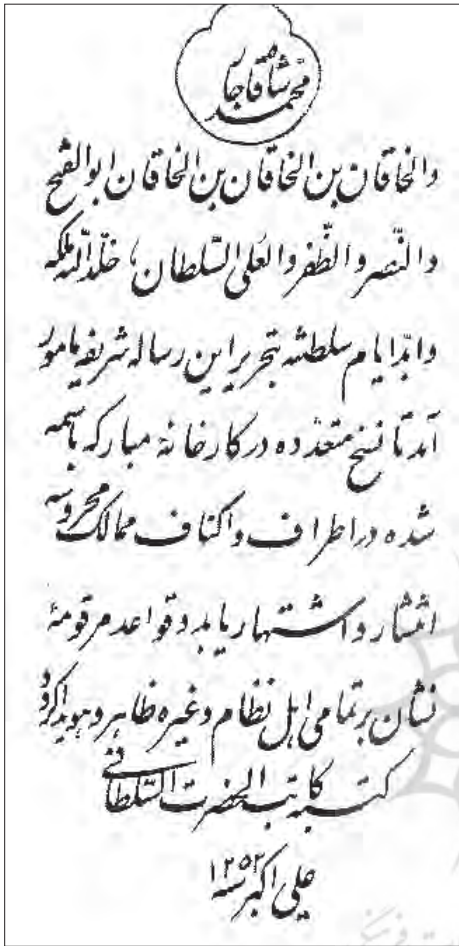 محمد شاه قاجار
والخاقان بن الخاقان بن الخاقان ابوالفتح
والنّصر والظّفر والعلی السّلطان، خلّد اللّه ملکه
وابّد ایام سلطنته بتحریر این رساله شریفه مامور
آمد تا نسخ متعدده در کارخانهٔ مبارکه باسمه
شده در اطراف و اکناف ممالک محروسه
انتشار و اشتهار یابد و قواعد مرقومهٔ
نشان بر تمامی اهل نظام و غیره ظاهر و هویدا گردد
کتبه کاتب الحضرت السّلطانی
علی اکبر سنه ۱۲۵۲